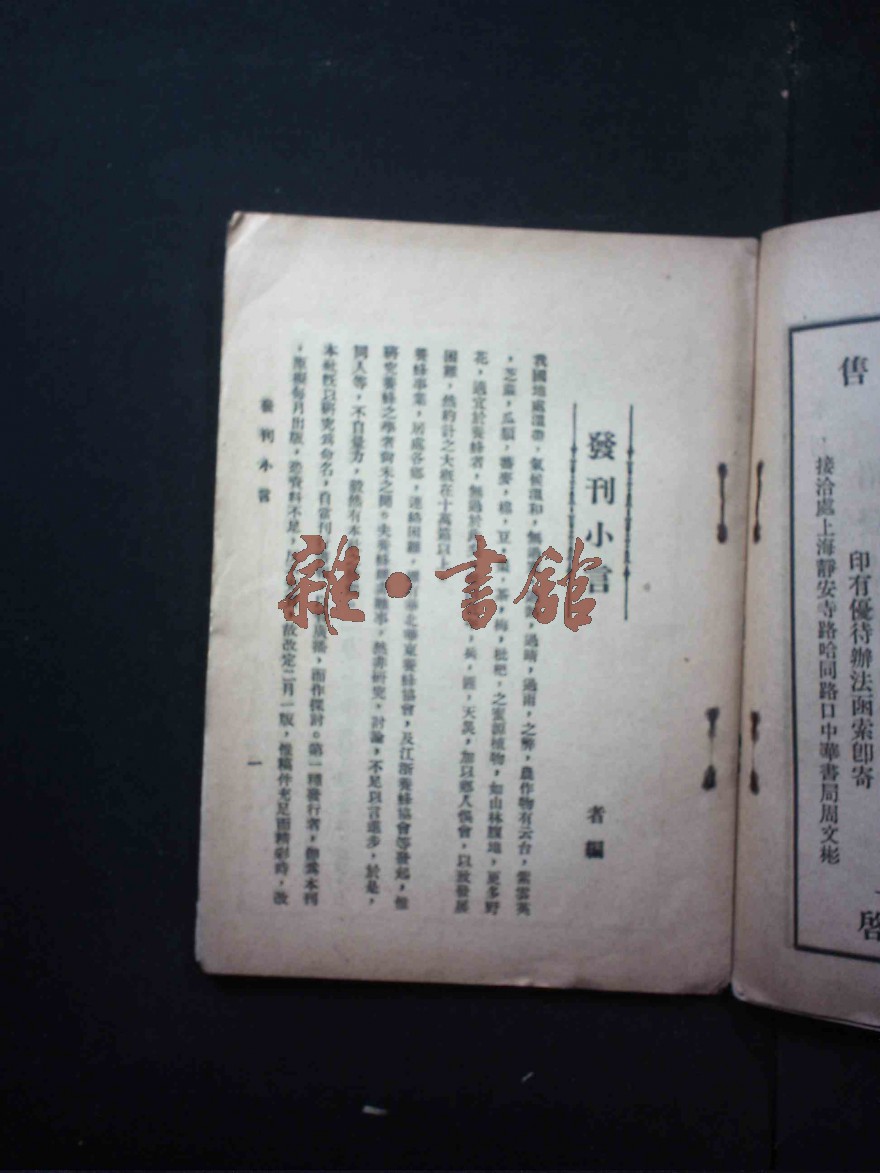 售
接洽處上海靜安寺路哈同路口中華書局周文彬
印有優待辦法函索即寄
啓
發刊小言
者編
我國地處溫帶，氣候溫和，無過晴，過雨，之弊，農作物有云台，紫雲英
，芝蔴，瓜類，蕎麥，棉，豆，茶，梅，枇杷，之蜜源植物，如山林腹地，更多野
花，適宜於養蜂者，無過於此兵，匪，天災，加以鄉人悞會，以致發展
困難，然約計之大概在十萬箱以上
養蜂事業，居處各鄉，連絡困難，華北華東養蜂協會，及江浙養蜂協會等發起，惟
研究養蜂之學者尙未之聞。夫養蜂雖事，然非研究，討論，不足以言進步，於是，
同人等，不自量力，毅然有本
本社旣以研究爲命名，自當刊而作探討。第一種發行者，卽爲本刊
，原擬每月出版，恐資料不足，故改定二月一版，惟稿件充足而精彩時，改
發刊小言
一
雜·書館